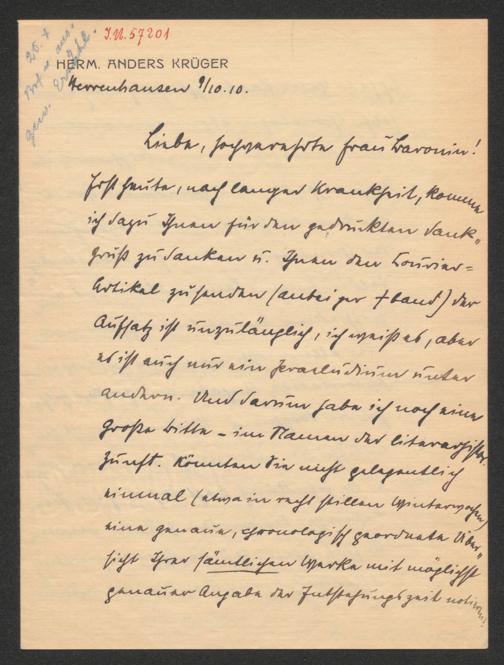 J.N. 57201
20. X
HERM. ANDERS KRÜGER
Herrenhausen 9/10.10.
Liebe, hochverehrte Frau Baronin!
Erst heute, nach langer Krankheit, komme
ich dazu Ihnen für den gedruckten Dank-
gruß zu danken u. Ihnen den Courier-
Artikel zu senden (anbei per +band) der
Aufsatz ist unzulänglich, ich weiß es, aber
es ist auch nur ein Praeludium unter
andern. Und darum habe ich noch eine
große Bitte – im Namen der literarhistor.
Zunft. Könnten Sie nicht gelegentlich
einmal (etwa in recht stillen Winterwochen)
eine genaue, chronologisch geordnete Über-
sicht Ihrer sämtlichen Werke mit möglichst
genauer Angabe der Entstehungszeit notieren!